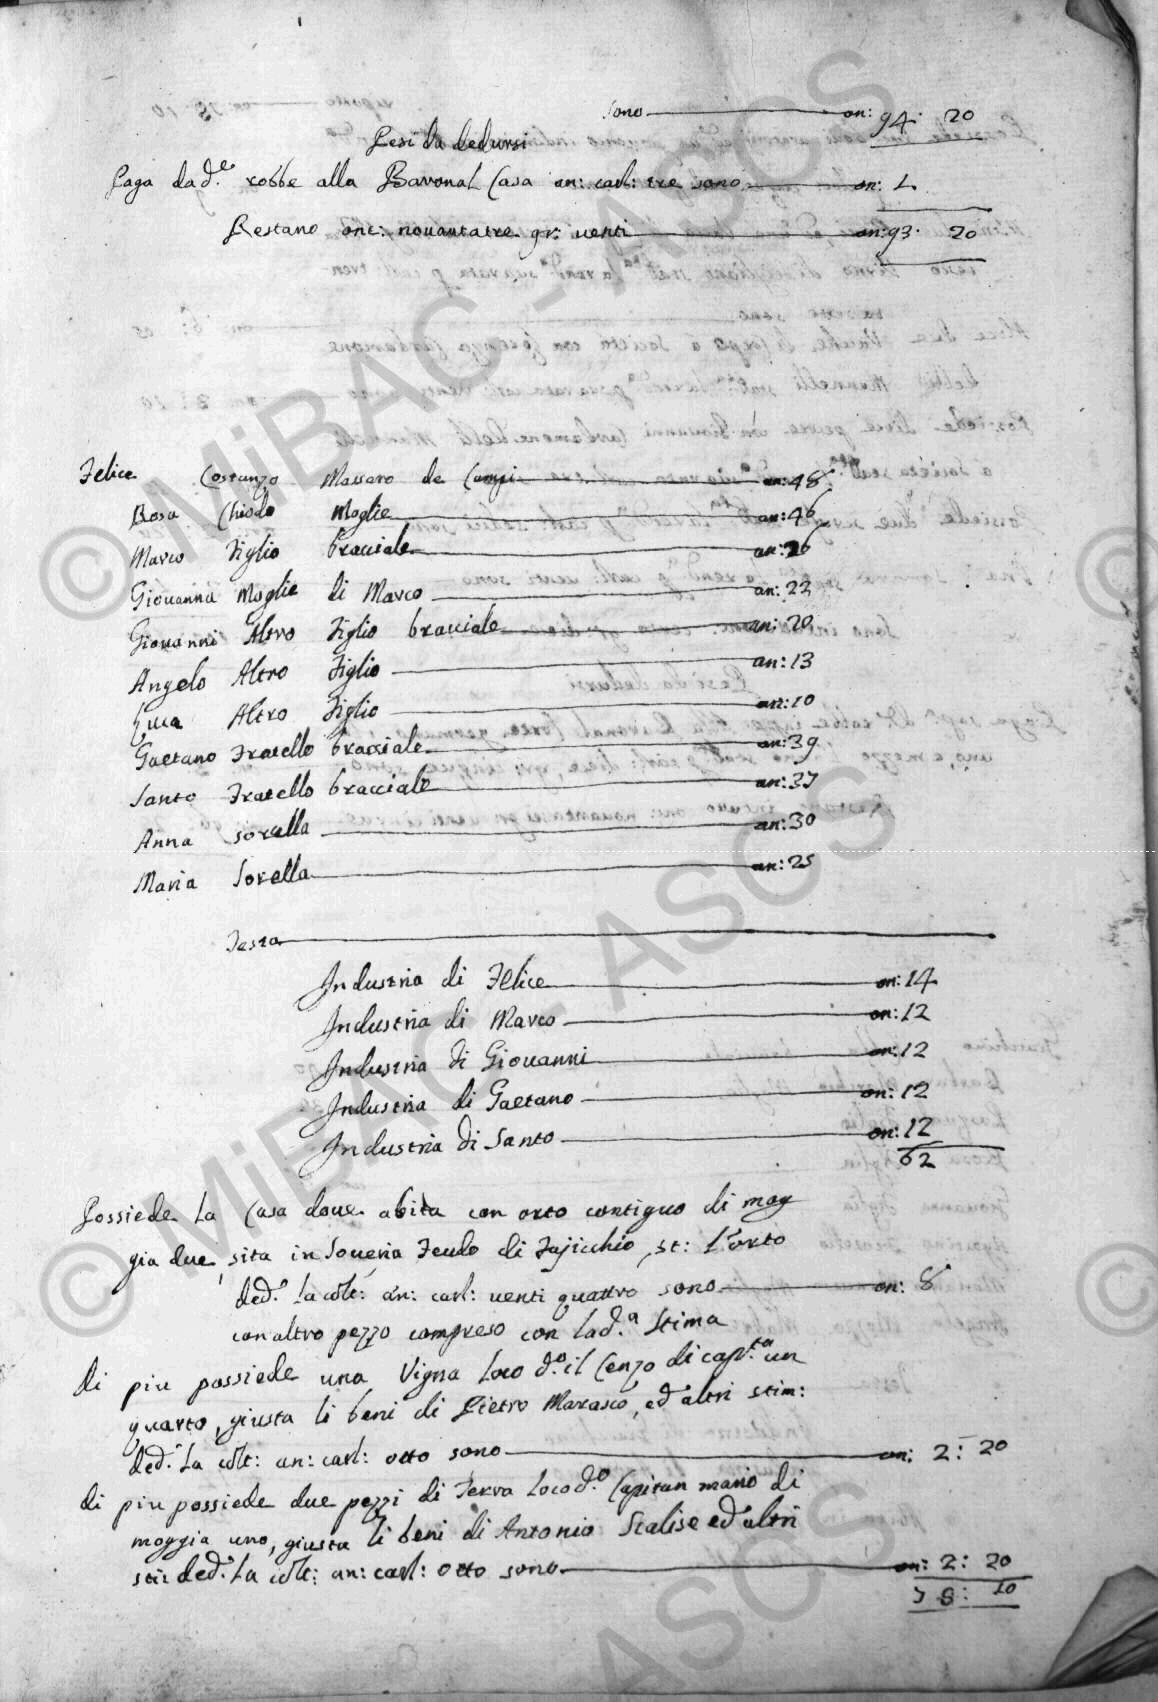 sono on: 94. 20
Pesi da dedursi
Paga da d.e robbe alla Baronal Casa an: carl: tre sono on: 1
Restano onc: novantatre gr: venti on: 93. 20
Felice Costanzo Massaro de Campi an: 48
Rosa Chiodo Moglie an: 46
Marco Figlio bracciale an: 26
Giovanna Moglie di Marco an: 22
Giovanni Altro Figlio bracciale an: 20
Angelo Altro Figlio an: 13
Luca Altro Figlio an: 10
Gaetano Fratello bracciale an: 39
Santo Fratello bracciale an: 37
Anna sorella an: 30
Maria Sorella an: 25
Testa
Industria di Felice on: 14
Industria di Marco on: 12
Industria di Giovanni on: 12
Industria di Gaetano on: 12
Industria di Santo on: 12
62
Possiede la Casa dove abita con orto contiguo di mog
gia due, sita in Soveria Feudo di Fajicchio, st: l'orto
ded.a la colt: an: carl: venti quattro sono on: 8
con altro pezzo compreso con la d.a Stima
di piu possiede una Vigna loco d.o il Cenzo di cap.ta un
quarto, giusta li beni di Pietro Marasco, ed altri stim:
ded.a la colt: an: carl: otto sono on: 2: 20
di piu possiede due pezzi di Terra loco d.o Capitan mario di
moggia uno, giusta li beni di Antonio Scalise ed altri
sti: ded.a la colt: an: carl: otto sono on: 2: 20
75: 10
© MiBAC - ASCS
© MiBAC - ASCS
ASCS
©
©